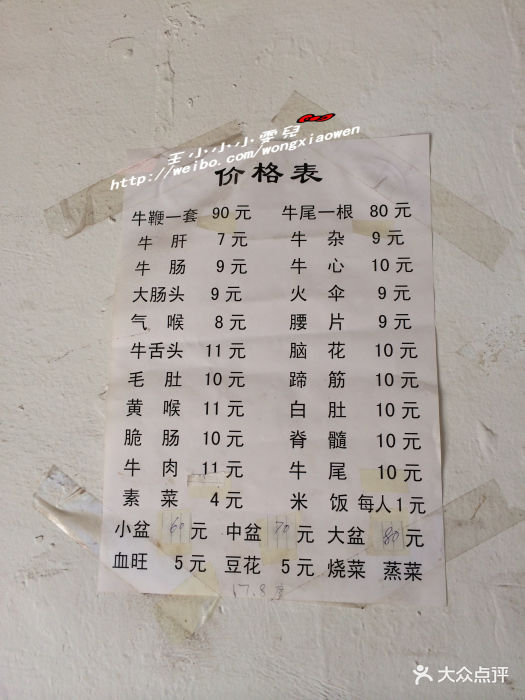 王小小小雯兒
http://weibo.com/wongxiaowen
价格表
牛鞭一套 90 元 牛尾一根 80 元
牛肝 7 元 牛杂 9 元
牛肠 9 元 牛心 10 元
大肠头 9 元 火伞 9 元
气喉 8 元 腰片 9 元
牛舌头 11 元 脑花 10 元
毛肚 10 元 蹄筋 10 元
黄喉 11 元 白肚 10 元
脆肠 10 元 脊髓 10 元
牛肉 11 元 牛尾 10 元
素菜 4 元 米饭 每人 1 元
小盆 60 元 中盆 70 元 大盆 80 元
血旺 5 元 豆花 5 元 烧菜 蒸菜
大众点评